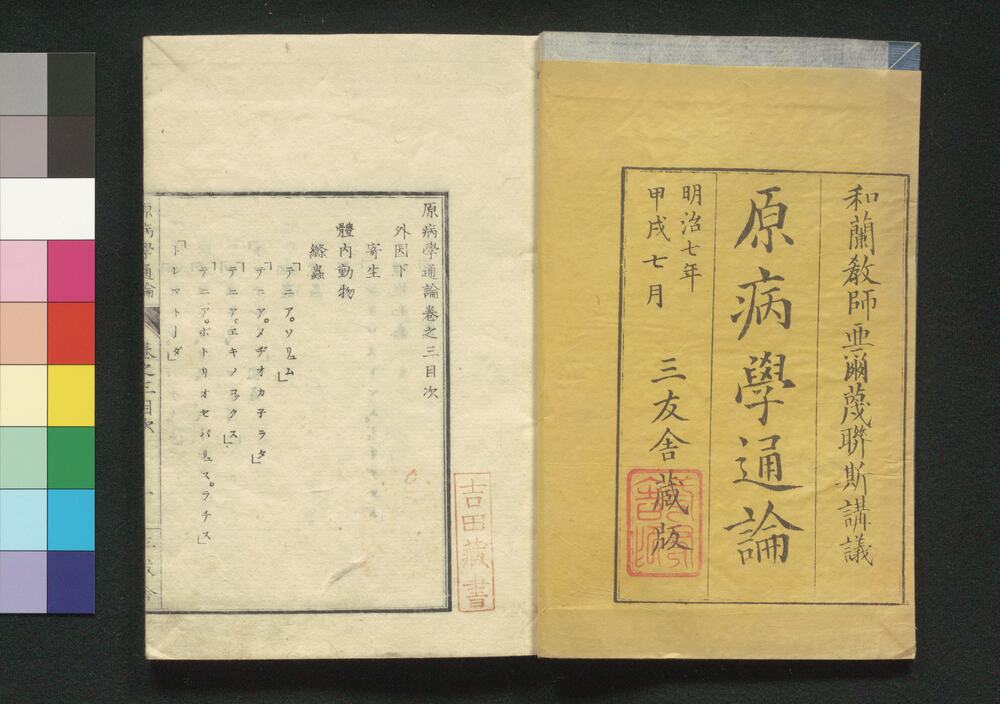 和蘭敎師亜爾蔑聯斯講議
原病學通論
明治七年
甲戌七月
三友舎藏版
原病學通論卷之三目次
外因下
寄生
體內動物
絛蟲
「テニア。ソリュム」
「テニア。メヂオカネラタ」
「テニア。エキノコックス」
「テニア。ボトリオセパリュス。ラチス」
「トレマトーダ」
原病學通論
卷之三目次
吉田藏書